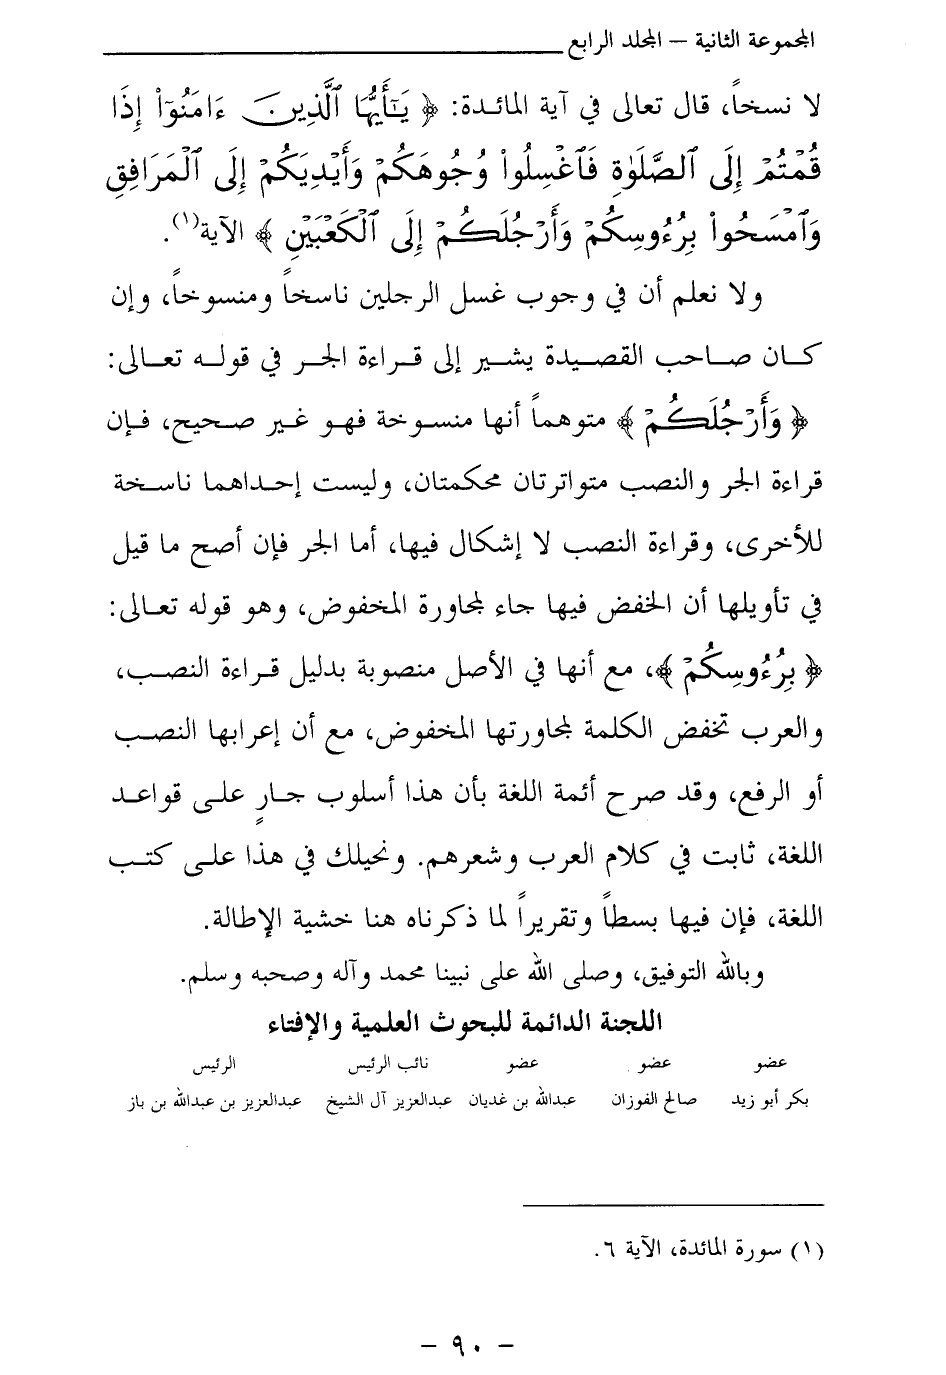 المجموعة الثانية – المجلد الرابع
لا نسخاً، قال تعالى في آية المائدة: ﴿ يَٰٓأَيُّهَا ٱلَّذِينَ ءَامَنُوٓا۟ إِذَا
قُمْتُمْ إِلَى ٱلصَّلَوٰةِ فَٱغْسِلُوا۟ وُجُوهَكُمْ وَأَيْدِيَكُمْ إِلَى ٱلْمَرَافِقِ
وَٱمْسَحُوا۟ بِرُءُوسِكُمْ وَأَرْجُلَكُمْ إِلَى ٱلْكَعْبَيْنِ ﴾ الآية(١).
ولا نعلم أن في وجوب غسل الرجلين ناسخاً ومنسوخاً، وإن
كان صاحب القصيدة يشير إلى قراءة الجر في قوله تعالى:
﴿ وَأَرْجُلَكُمْ ﴾ متوهماً أنها منسوخة فهو غير صحيح، فإن
قراءة الجر والنصب متواترتان محكمتان، وليست إحداهما ناسخة
للأخرى، وقراءة النصب لا إشكال فيها، أما الجر فإن أصح ما قيل
في تأويلها أن الخفض فيها جاء لمجاورة المخفوض، وهو قوله تعالى:
﴿ بِرُءُوسِكُمْ ﴾، مع أنها في الأصل منصوبة بدليل قراءة النصب،
والعرب تخفض الكلمة لمجاورتها المخفوض، مع أن إعرابها النصب
أو الرفع، وقد صرح أئمة اللغة بأن هذا أسلوب جارٍ على قواعد
اللغة، ثابت في كلام العرب وشعرهم. ونحيلك في هذا على كتب
اللغة، فإن فيها بسطاً وتقريراً لما ذكرناه هنا خشية الإطالة.
وبالله التوفيق، وصلى الله على نبينا محمد وآله وصحبه وسلم.
اللجنة الدائمة للبحوث العلمية والإفتاء
عضو عضو عضو نائب الرئيس الرئيس
بكر أبو زيد صالح الفوزان عبدالله بن غديان عبدالعزيز آل الشيخ عبدالعزيز بن عبدالله بن باز
(١) سورة المائدة، الآية ٦.
– ٩٠ –